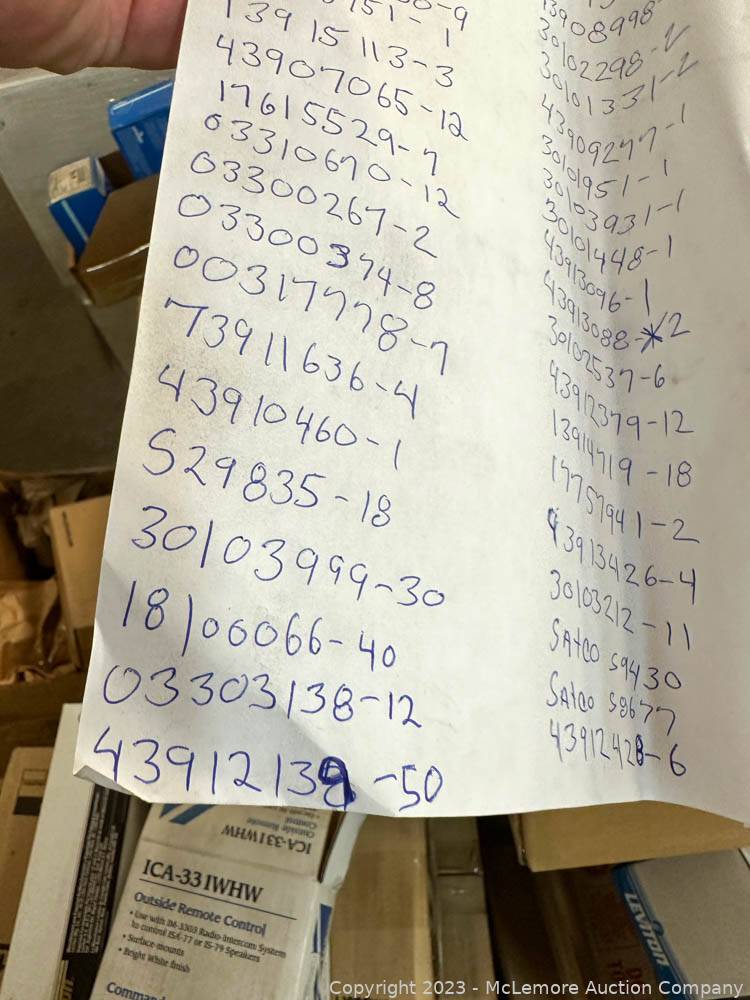 13915113-3
43907065-12
17615529-7
03310670-12
03300267-2
03300374-8
00317778-7
73911636-4
43910460-1
S29835-18
30103999-30
18106066-40
03303138-12
43912139-50
13908998
30102298-2
30101331-2
43909277-1
30101951-1
30103931-1
30101448-1
43913096-1
43913088-*2
30102537-6
43912379-12
13914719-18
17757941-2
43913426-4
30103212-11
SAtCO S9430
SAtCO S8677
43912428-6
Outside Remote
Control
ICA-331WHW
ICA-331WHW
Outside Remote Control
• Use with IM-3303 Radio-Intercom System
to control ISA-77 or IS-79 Speakers
• Surface-mounts
• Bright White finish
LEVITON
Copyright 2023 - McLemore Auction Company